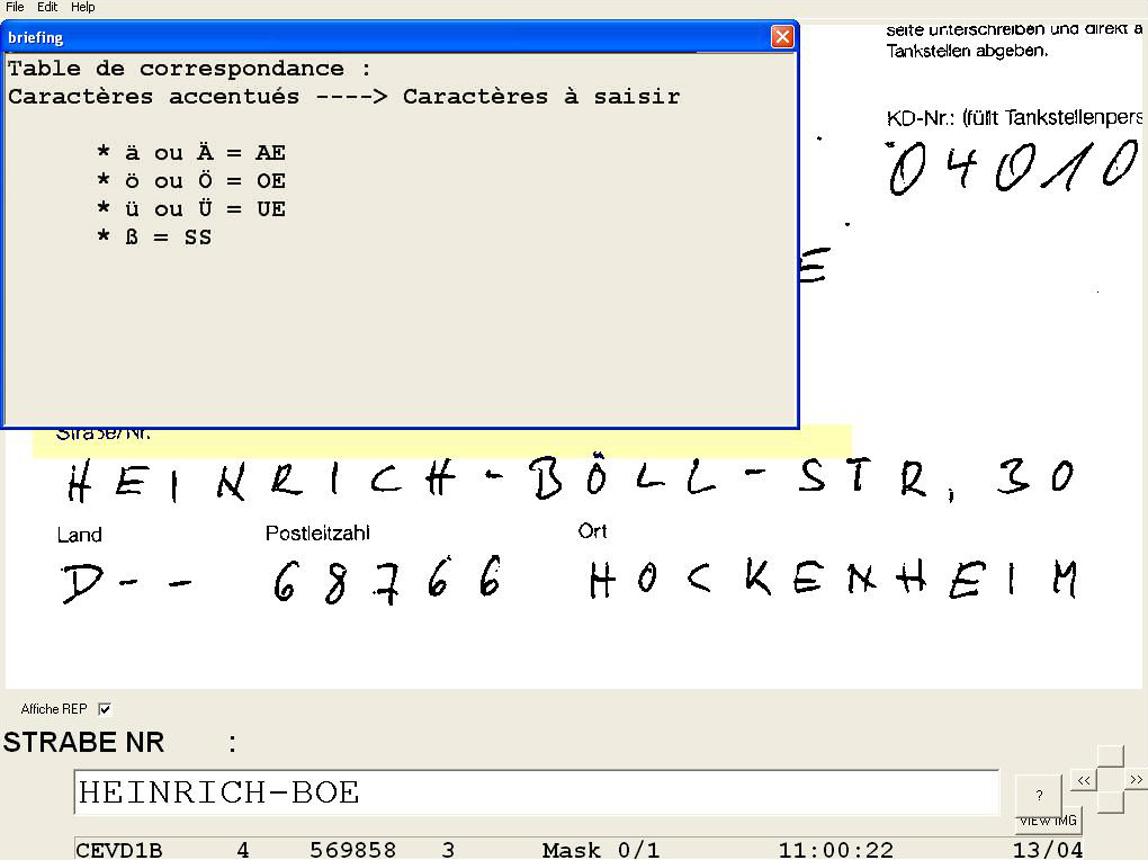 File Edit Help
briefing
Table de correspondance :
Caractères accentués ----> Caractères à saisir
* ä ou Ä = AE
* ö ou Ö = OE
* ü ou Ü = UE
* ß = SS
seite unterschreiben und direkt a
Tankstellen abgeben.
KD-Nr.: (füllt Tankstellenpers
04010
E
Straße/Nr.
HEINRICH-BÖLL-STR. 30
Land Postleitzahl Ort
D-- 68766 HOCKENHEIM
Affiche REP
STRABE NR :
HEINRICH-BOE
<< >>
?
VIEW IMG
CEVD1B 4 569858 3 Mask 0/1 11:00:22 13/04